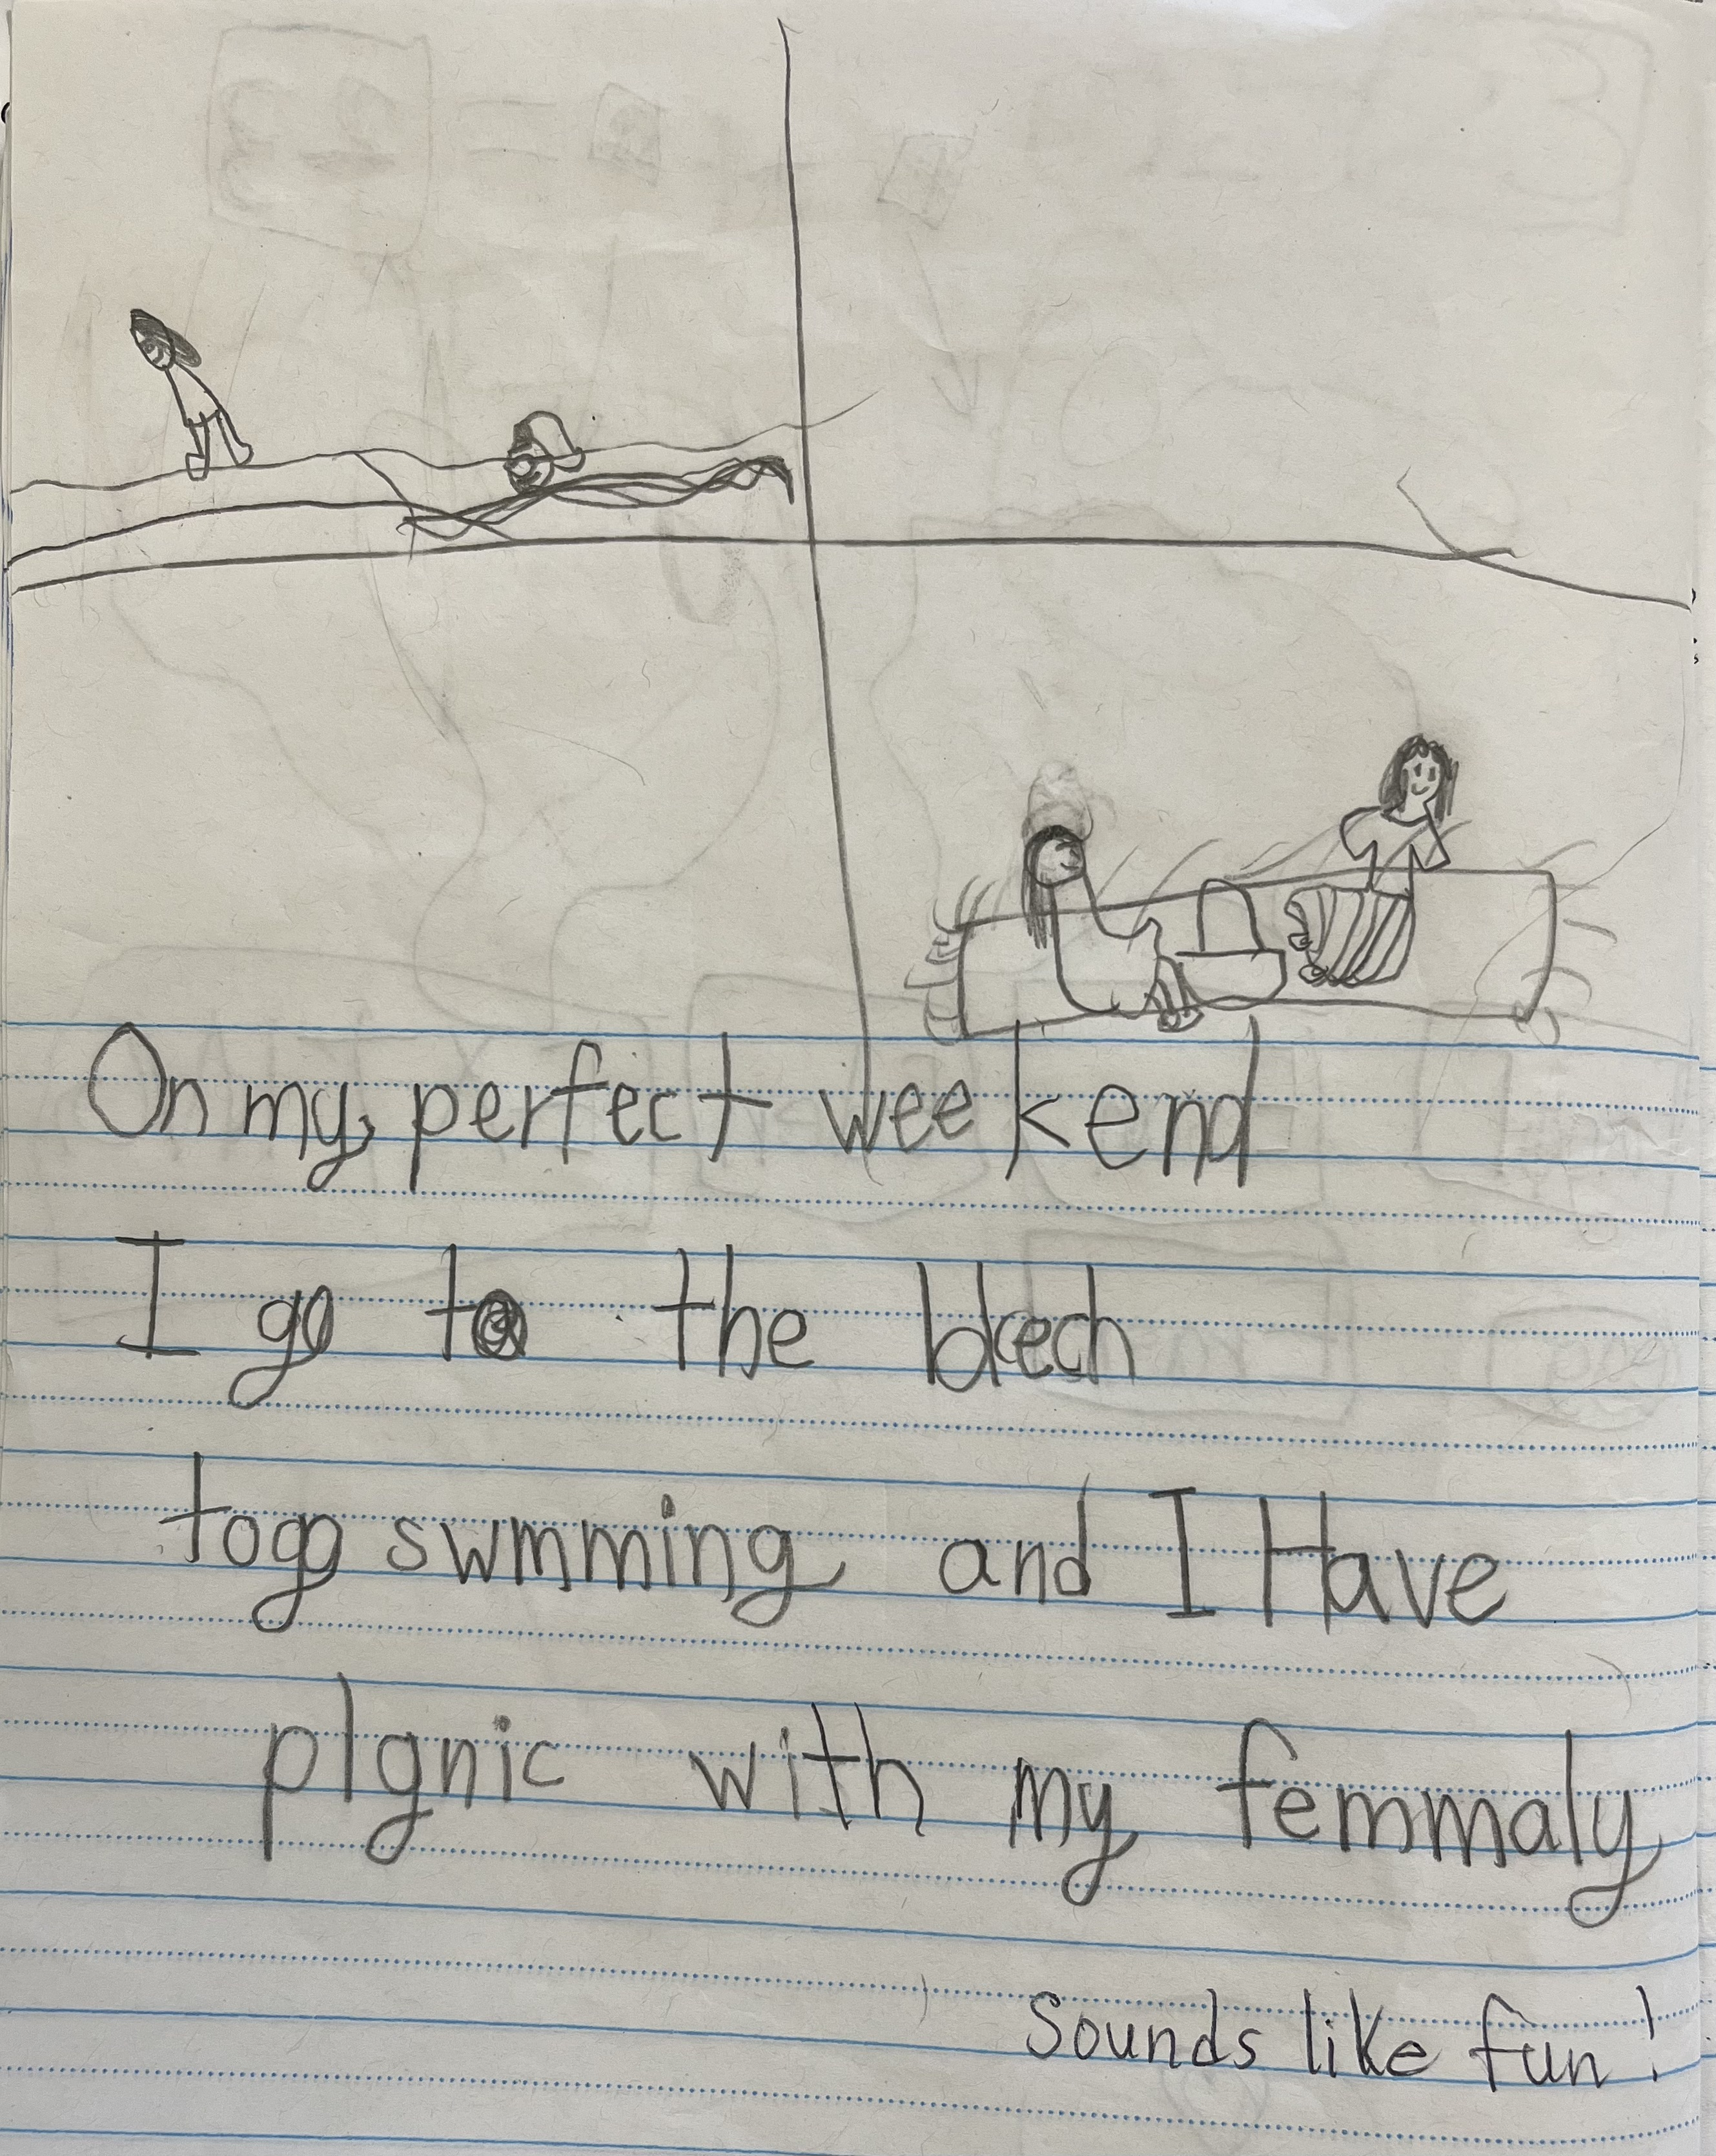 On my perfect weekend
I go to the blech
togo swmming and I Have
plgnic with my femmaly
Sounds like fun!